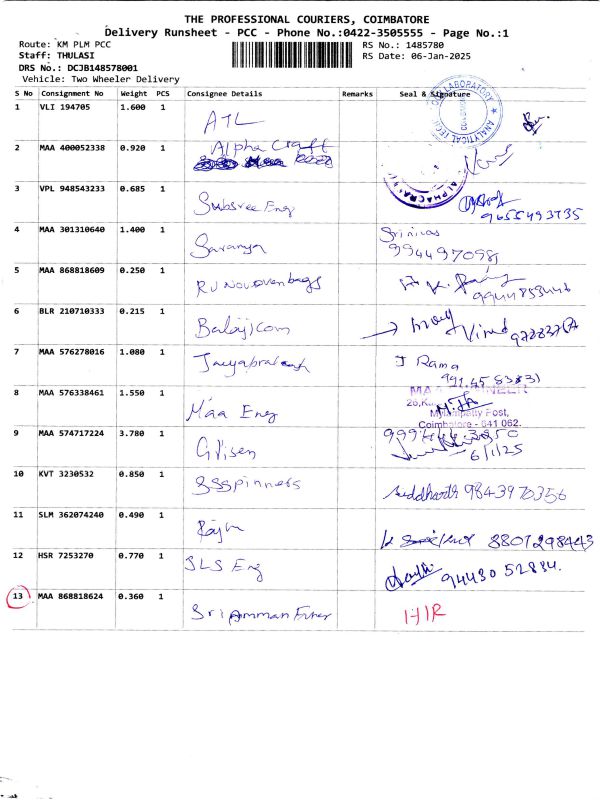 THE PROFESSIONAL COURIERS, COIMBATORE
Delivery Runsheet - PCC - Phone No.:0422-3505555 - Page No.:1
Route: KM PLM PCC
RS No.: 1485780
Staff: THULASI
RS Date: 06-Jan-2025
DRS No.: DCJB148578001
Vehicle: Two Wheeler Delivery
S No Consignment No Weight PCS Consignee Details Remarks Seal & Signature
1 VLI 194705 1.600 1 ATL
2 MAA 400052338 0.920 1 Alpha Craft
3 VPL 948543233 0.685 1 Subsree Eng
9655493735
4 MAA 301310640 1.400 1 Saranya Srinivas
9944970981
5 MAA 868818609 0.250 1 RV Novovenbags
9944853446
6 BLR 210710333 0.215 1 Balaji com
7 MAA 576278016 1.080 1 Jayaprakash J Rama
8 MAA 576338461 1.550 1 Maa Eng
Post,
Coimbatore - 641 062.
9 MAA 574717224 3.780 1
6/1/25
10 KVT 3230532 0.850 1 SSspinners Siddharth 9843970356
11 SLM 362074240 0.490 1 8807298443
12 HSR 7253270 0.770 1 SLS Eng 94430 52884.
13 MAA 868818624 0.360 1 Sri Amman